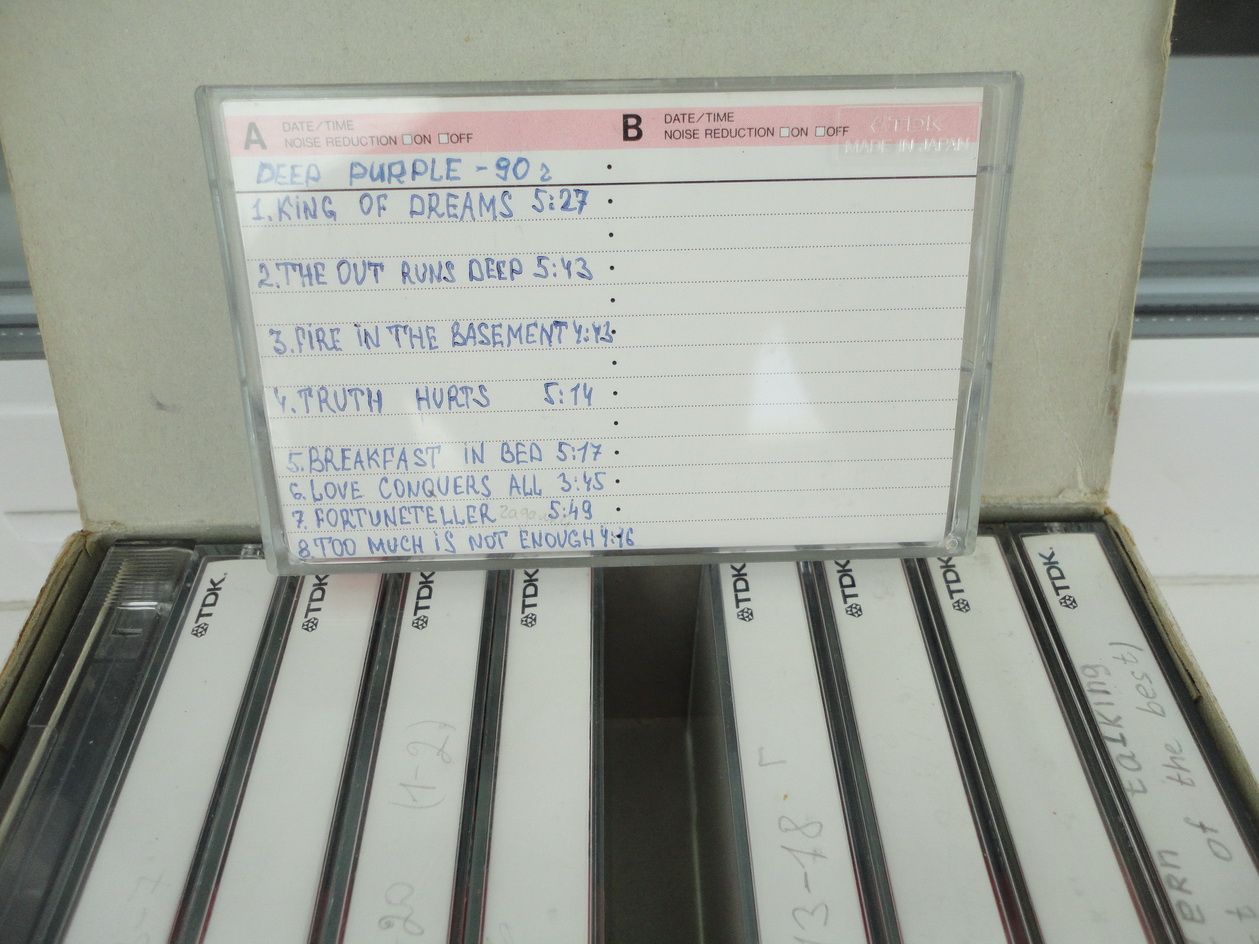 A DATE/TIME
NOISE REDUCTION □ON □OFF
B DATE/TIME
NOISE REDUCTION □ON □OFF
TDK
MADE IN JAPAN
DEEP PURPLE - 90 г
1. KING OF DREAMS 5:27
2. THE OUT RUNS DEEP 5:43
3. FIRE IN THE BASEMENT 4:43
4. TRUTH HURTS 5:14
5. BREAKFAST IN BED 5:17
6. LOVE CONQUERS ALL 3:45
7. FORTUNETELLER 5:49
8. TOO MUCH IS NOT ENOUGH 4:16
TDK.
TDK
TDK
20 (1-2)
TDK
TDK
13-18
TDK
TDK
TDK
talking
of the best)